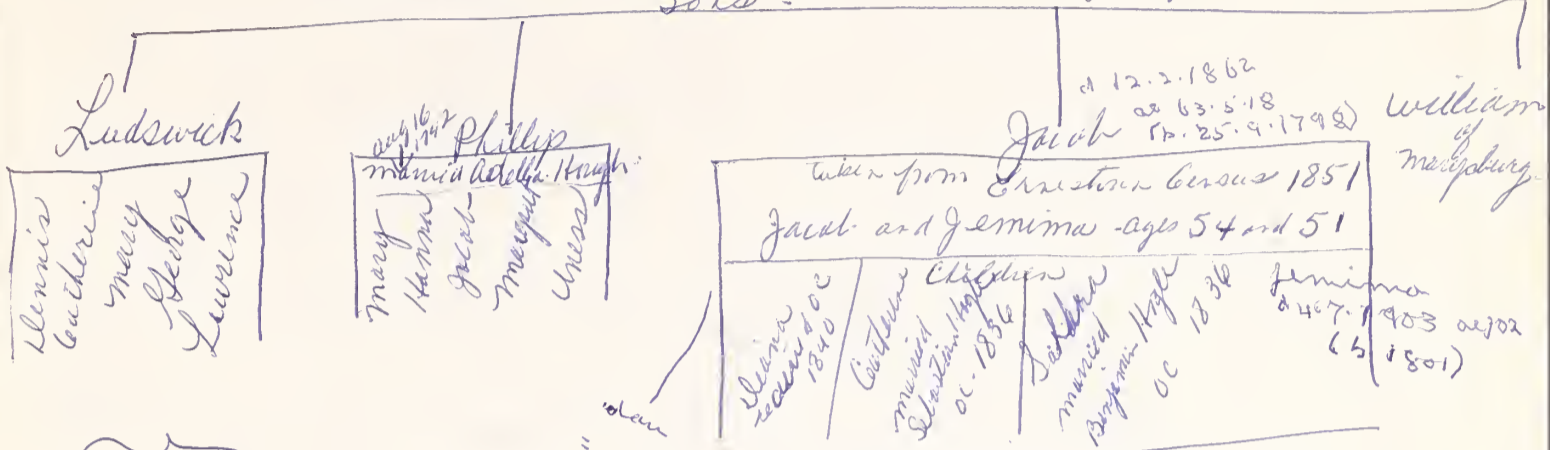 Sons -
Ludswick
Dennis
Catherine
Mary
George
Lawrence
Phillip
Aug 16
married Adelia Hough
Mary
Hanna
Jacob
Margaret
Jacob
d 12.2.1862
ae 63.5.18
(b. 25.9.1798)
taken from Ernestown Census 1851
Jacob and Jemima - ages 54 and 51
Children
Diana
received OC
1840
Catherine
married
Sebastian Hogle
OC - 1836
married
Benjamin Hogle
OC 1836
Jemima
1903 ae 102
(b 1801)
William
of
Marysburg
"